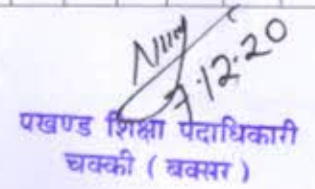 7.12.20
पखण्ड शिक्षा पदाधिकारी
चक्की ( बक्सर )